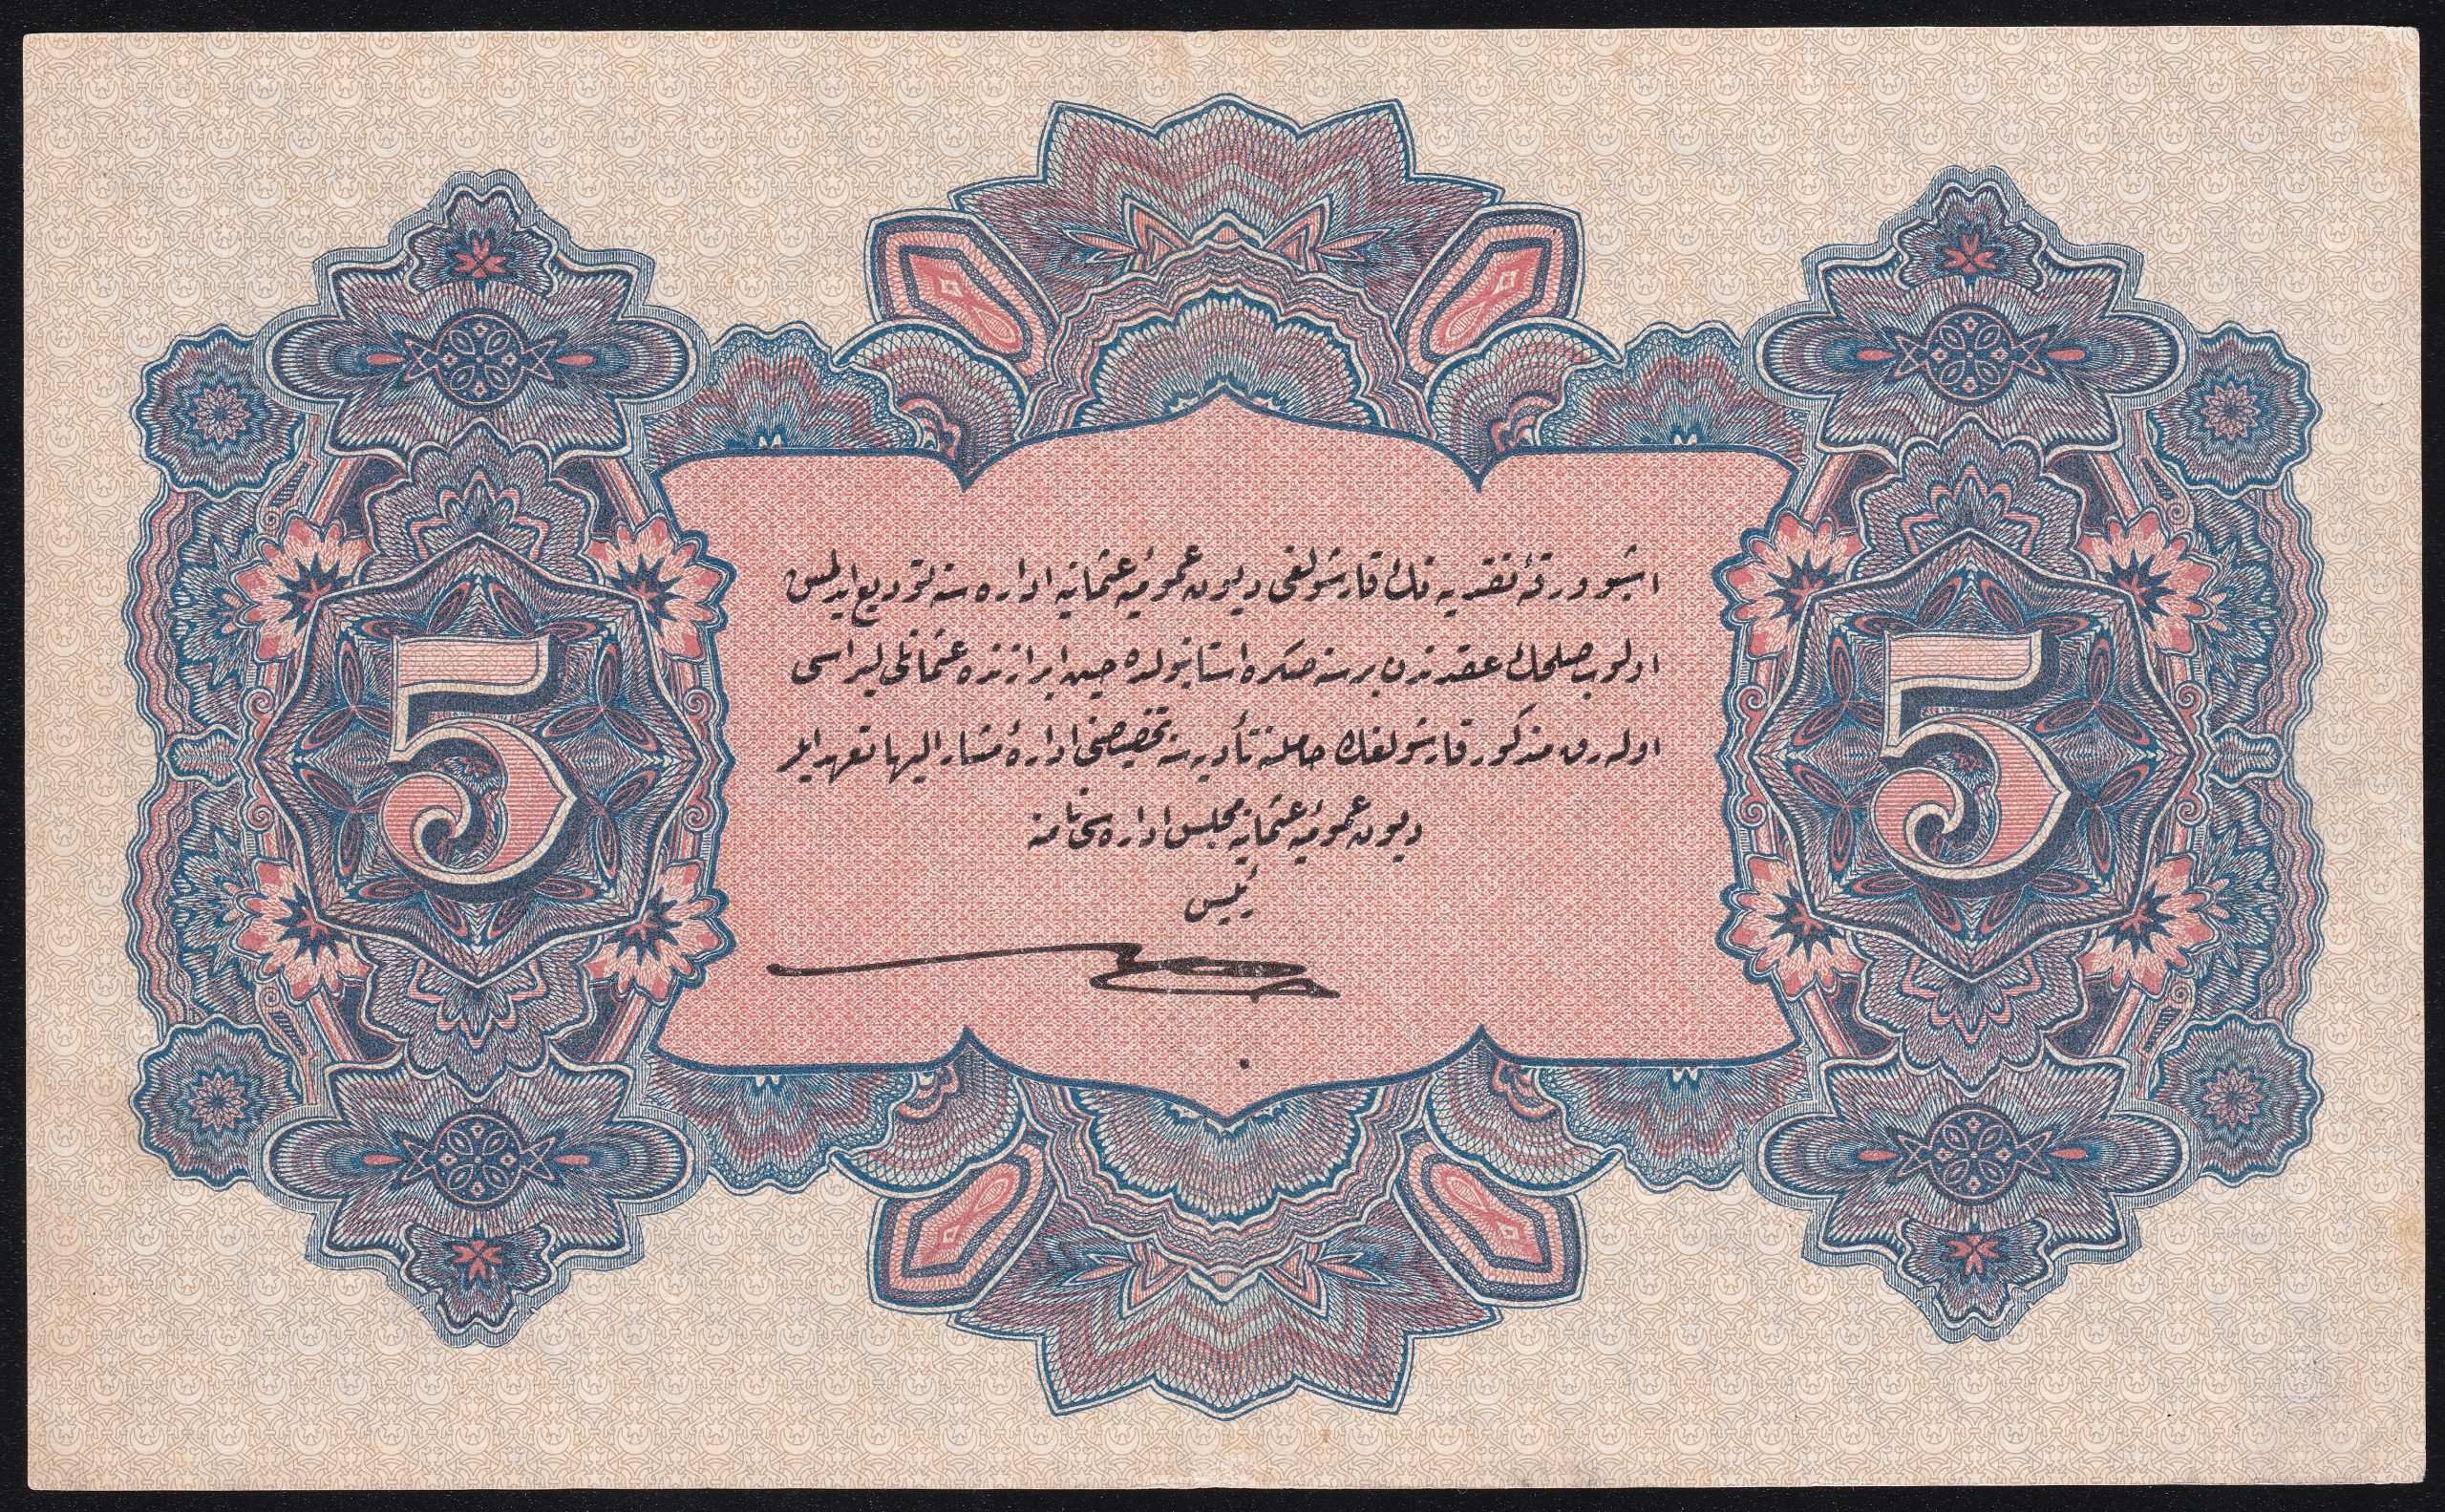 اشبو ورقهٔ نقديه نك قارشولغی ديون عموميهٔ عثمانيه اداره سنه توديع ايدلمش
اولوب صلحك عقدندن بر سنه صكره استانبولده حين ابرازنده عثمانلی ليراسی
اوله رق مذكور قارشولغك حاملنه تأديه سنه تخصيصنی ادارهٔ مشار اليها تعهد ايلر
ديون عموميهٔ عثمانيه مجلس اداره سی نامنه
رئيس
5
5